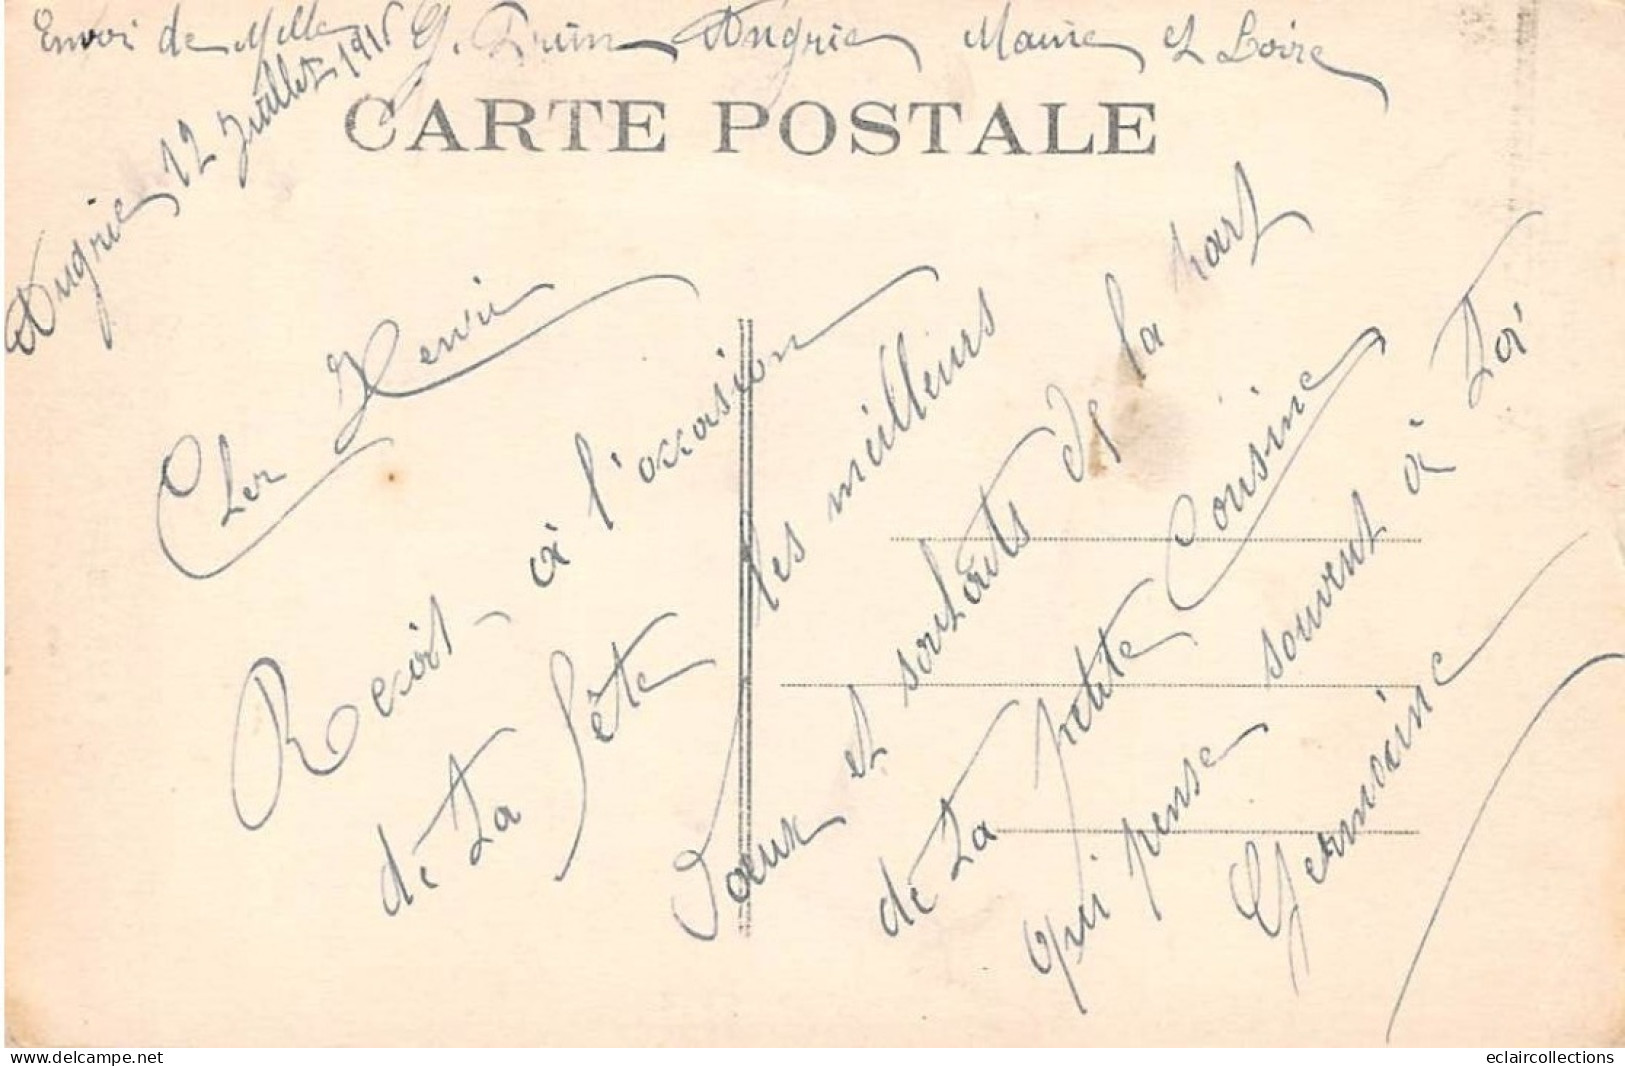 Envoi de Melle G. Angrie Maine et Loire
CARTE POSTALE
Angrie 12 Juillet 1915
Cher Henri
Recois à l'occasion
de ta fête les meilleurs
vœux et souhaits de la part
de ta petite Cousine
qui pense souvent à toi
Germaine
eclaircollections
www.delcampe.net